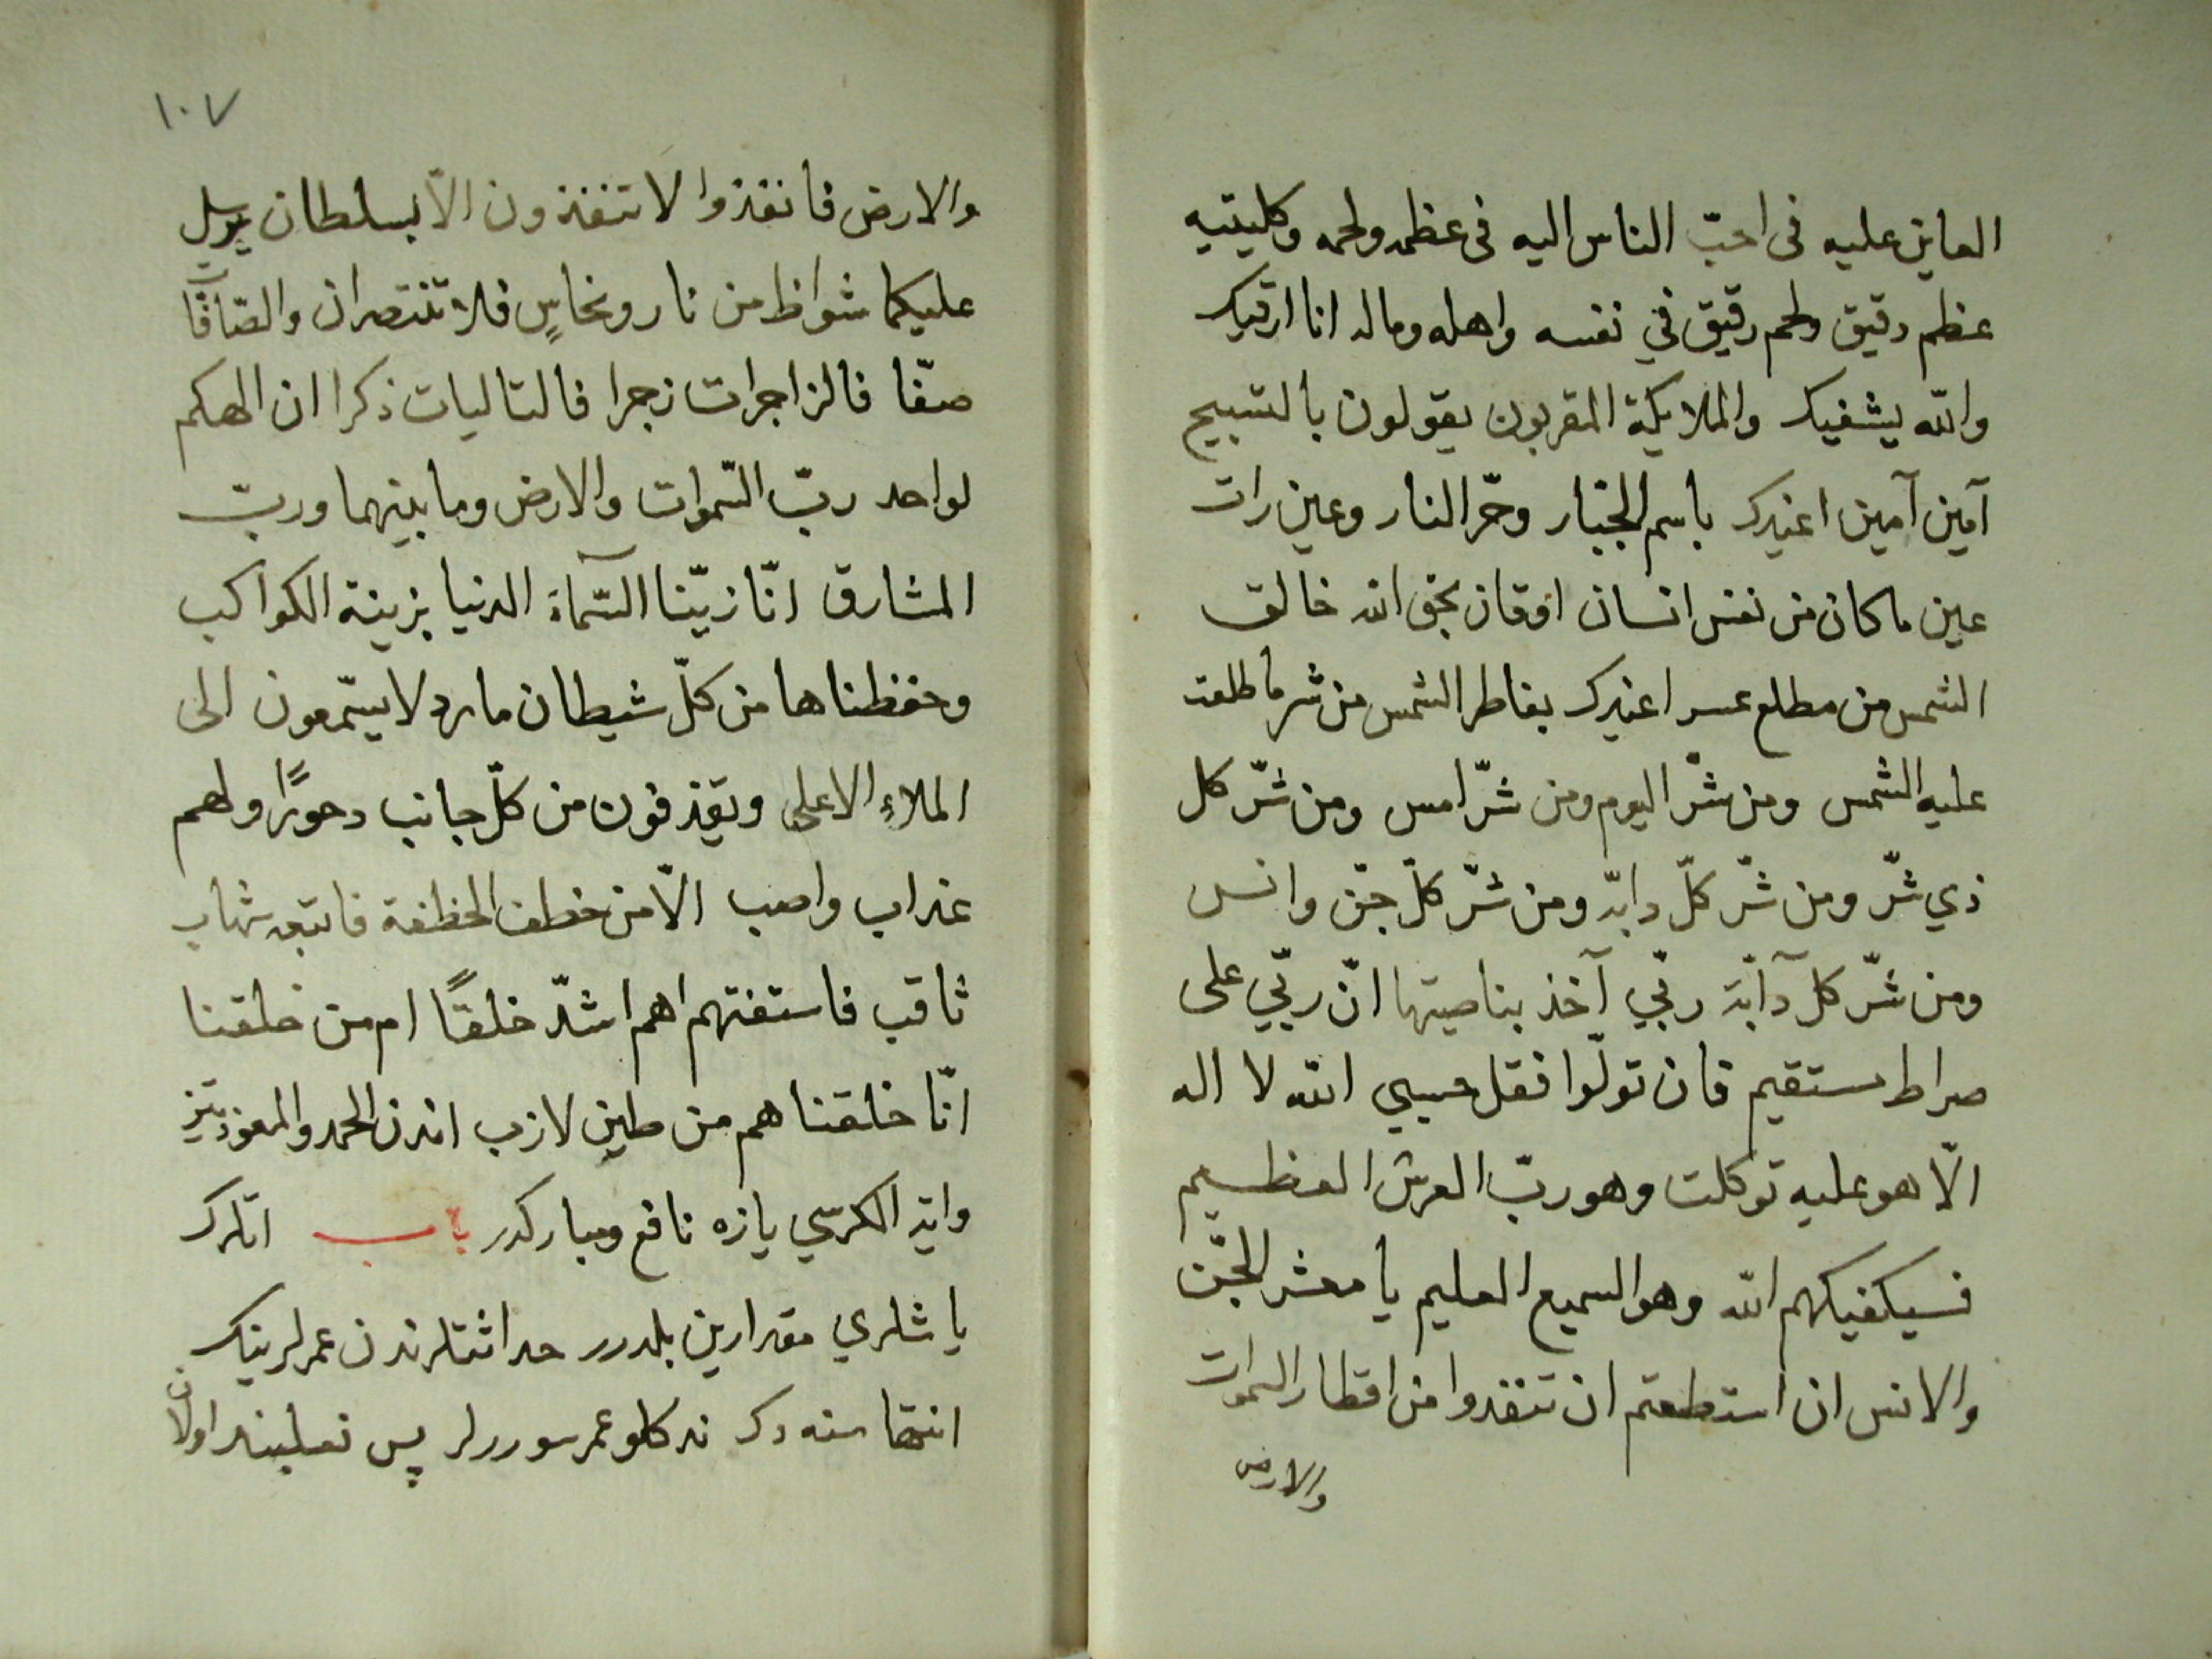 العاين عليه فى احبّ الناس اليه فى عظمه ولحمه وكليتيه
عظم دقيق ولحم رقيق في نفسه واهله وماله انا ارقيك
والله يشفيك والملايكة المقربون يقولون بالتسبيح
آمين آمين اعيذك باسم الجبّار وحرّ النار وعين رات
عين ما كان من نفس انسان بحق الله خالق
الشمس من مطلع اعيذك بفاطر الشمس من شر ما طلعت
عليه الشمس ومن شرّ اليوم ومن شرّ امس ومن شرّ كل
ذي شرّ ومن شرّ كلّ دابّه ومن شرّ كلّ جنّ وانس
ومن شرّ كلّ دآبّة ربّي آخذ بناصيتها انّ ربّي على
صراط مستقيم فان تولّوا فقل حسبي الله لا اله
الّا هو عليه توكلت وهو ربّ العرش العظيم
فسيكفيكهم الله وهو السميع العليم يا معشر الجنّ
والانس ان استطعتم ان تنفذوا من اقطار السموات
والارض
١٠٧
والارض فانفذوا لا تنفذون الّا بسلطان يرسل
عليكما شواظ من نار ونحاسٍ فلا تنتصران والصّآفّات
صفّا فالزاجرات زجرا فالتاليات ذكرا ان الهكم
لواحد ربّ السّموات والارض وما بينهما وربّ
المشارق انّا زيّنا السّمآء الدنيا بزينة الكواكب
وحفظناها من كلّ شيطان مارد لا يسّمعون الى
الملاءِ الاعلى ويقذفون من كلّ جانب دحورًا ولهم
عذاب واصب الّا من خطف الخطفة فاتبعه شهاب
ثاقب فاستفتهم اهم اشدّ خلقًا ام من خلقنا
انّا خلقناهم من طين لازب اندن الحمد والمعوّذتين
واية الكرسّي يازه نافع ومباركدر باب اتلرك
ياشلري مقدارين بلدرر حداثتلرندن عمرلرينك
انتهاسنه دك نه كلو عمر سوررلر پس نعلبند اولان